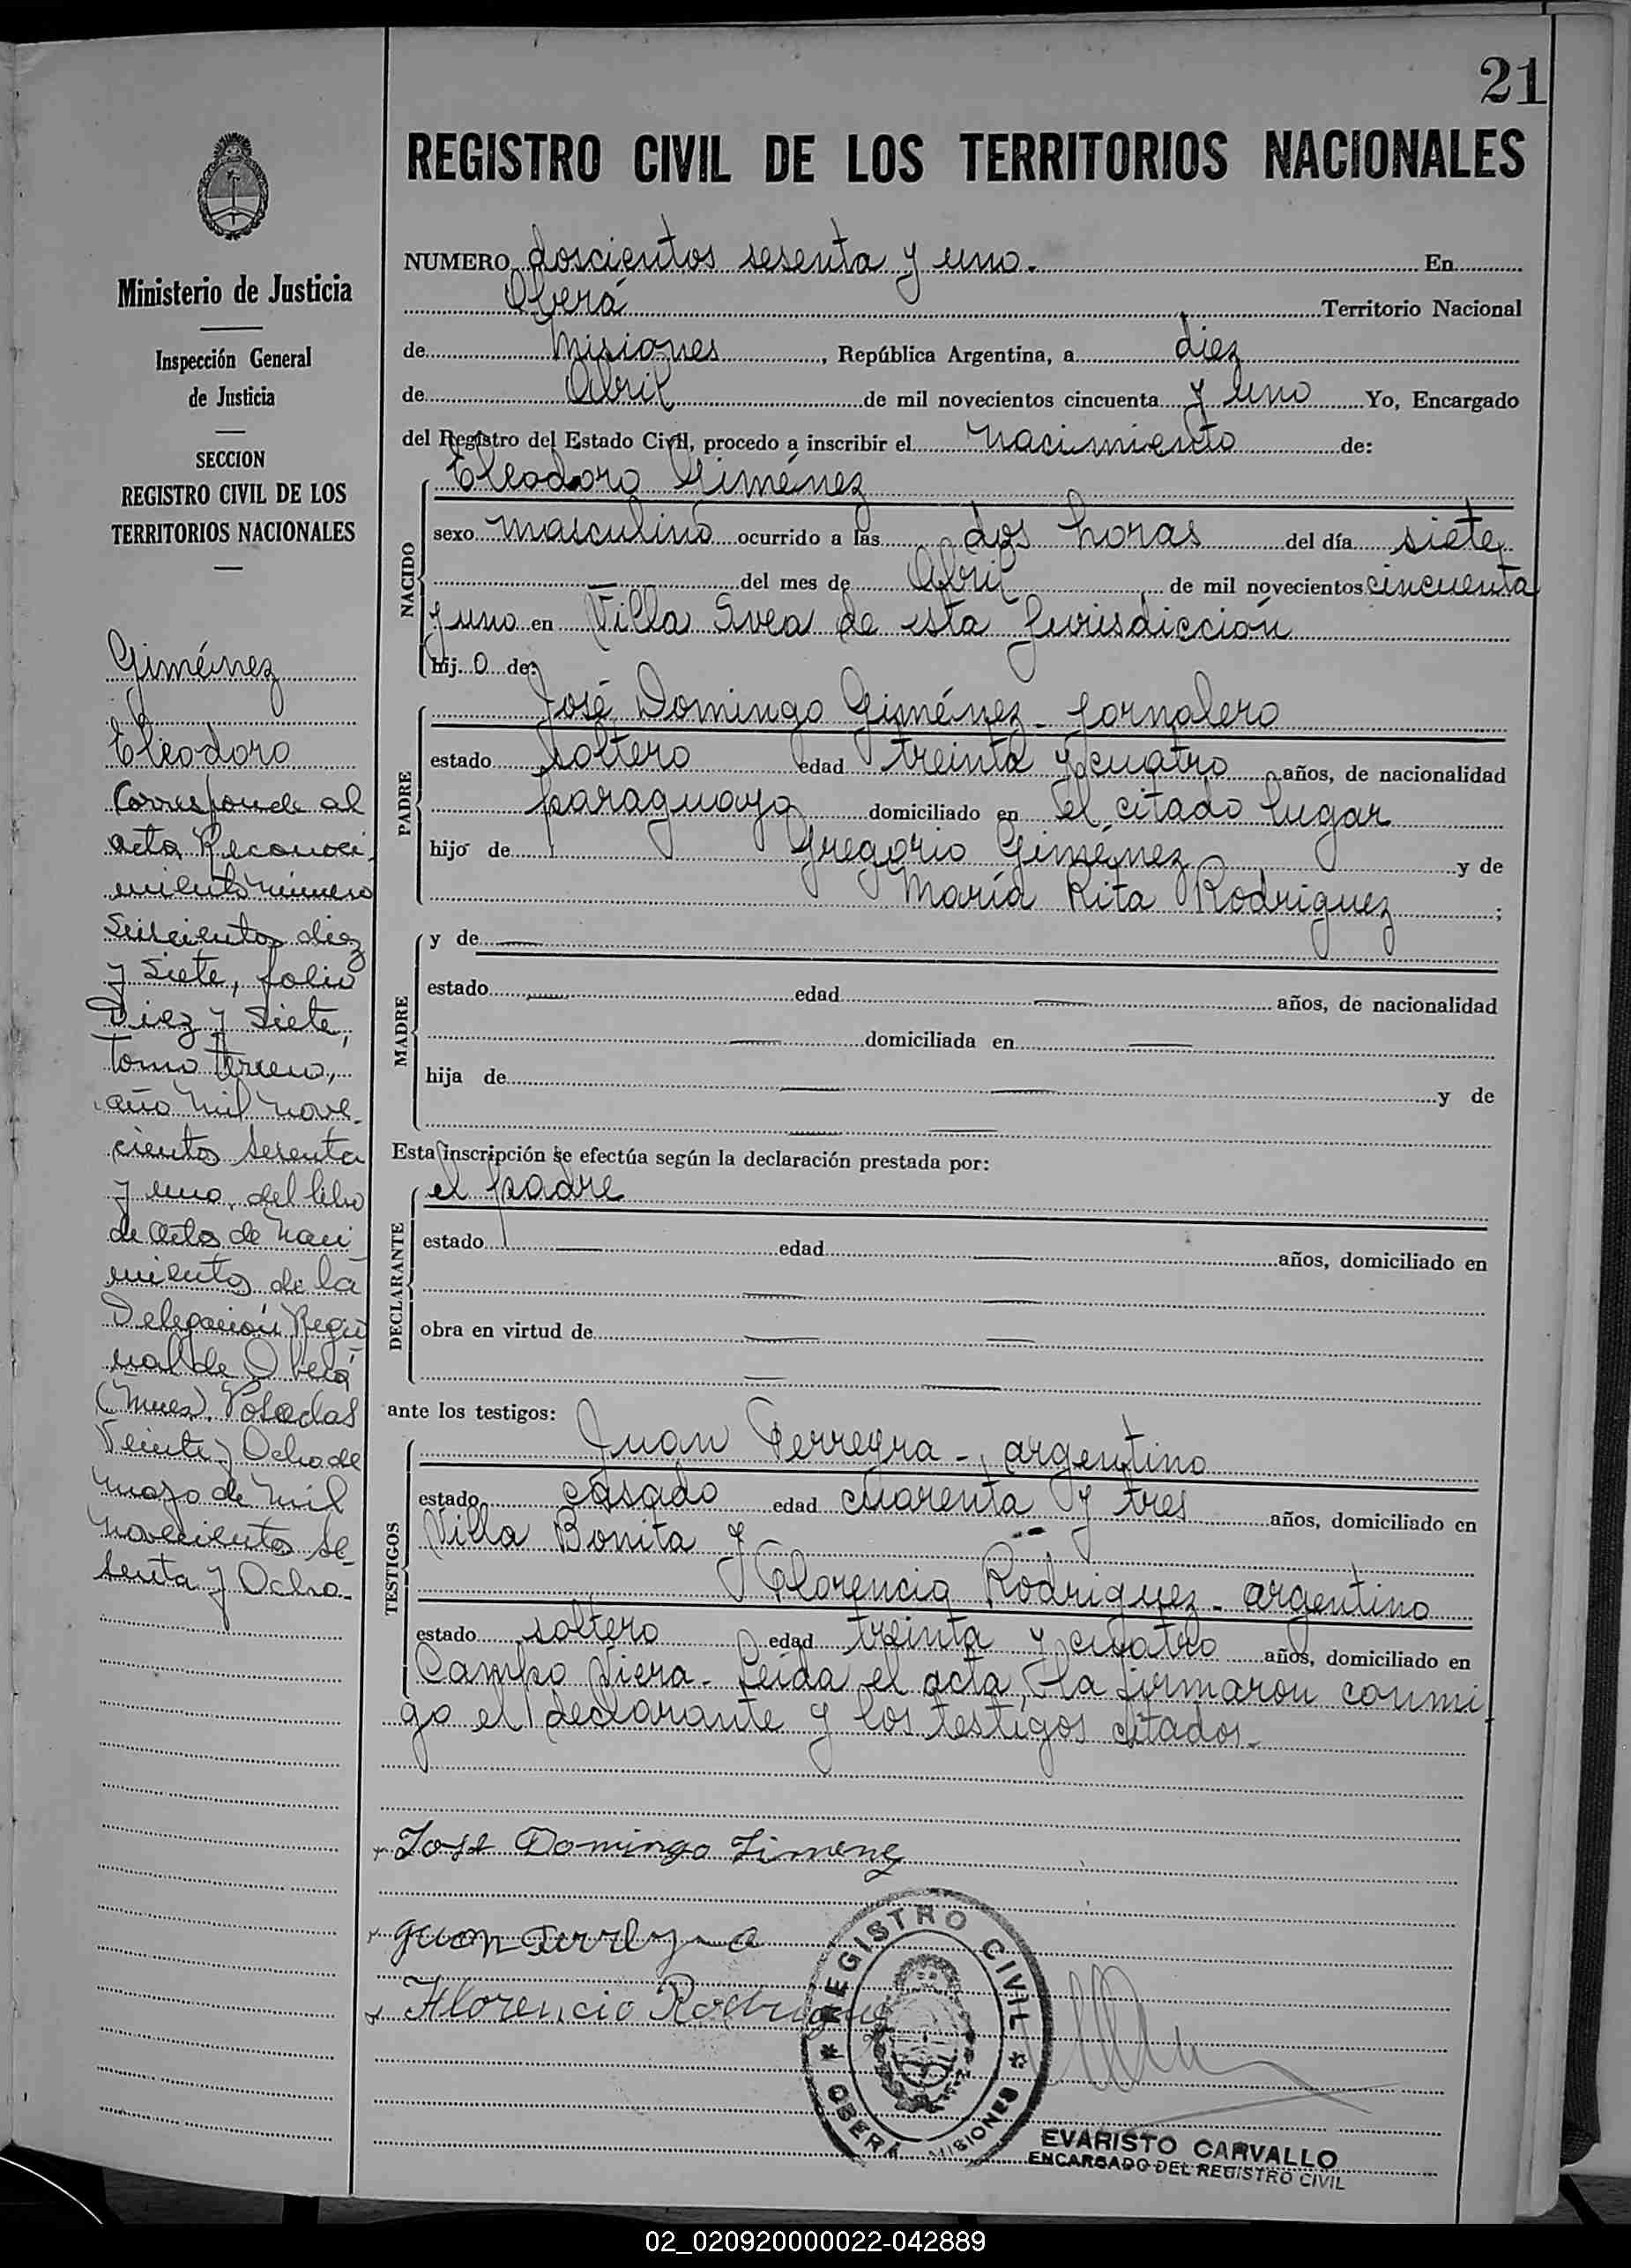 21
REGISTRO CIVIL DE LOS TERRITORIOS NACIONALES
Ministerio de Justicia
Inspección General
de Justicia
SECCION
REGISTRO CIVIL DE LOS
TERRITORIOS NACIONALES
Giménez
Eleodoro
Corresponde al
acta Reconoci-
miento número
Seiscientos diez
y Siete, folio
Diez y Siete,
Tomo tercero,
año mil nove-
cientos sesenta
y uno, del libro
de Actas de Naci-
mientos de la
Delegación Regio
nal de Oberá
(Mnes). Posadas
Veinte y Ocho de
mayo de mil
novecientos se-
senta y Ocho.-
NUMERO doscientos sesenta y uno.- En
Oberá Territorio Nacional
de Misiones, República Argentina, a diez
de Abril de mil novecientos cincuenta y uno Yo, Encargado
del Registro del Estado Civil, procedo a inscribir el Nacimiento de:
NACIDO
Eleodoro Giménez
sexo masculino ocurrido a las dos horas del día siete
del mes de Abril de mil novecientos cincuenta
y uno en Villa Svea de esta jurisdicción
hij o de:
PADRE
José Domingo Giménez - jornalero
estado soltero edad treinta y cuatro años, de nacionalidad
paraguaya domiciliado en el citado lugar
hijo de Gregorio Giménez y de
María Rita Rodriguez ;
MADRE
y de
estado edad años, de nacionalidad
domiciliada en
hija de y de
Esta inscripción se efectúa según la declaración prestada por:
DECLARANTE
el padre
estado edad años, domiciliado en
obra en virtud de
ante los testigos:
TESTIGOS
Juan Ferreyra -, argentino
estado casado edad cuarenta y tres años, domiciliado en
Villa Bonita y
Florencio Rodriguez - argentino
estado soltero edad treinta y cuatro años, domiciliado en
Campo Viera - Leída el acta, la firmaron conmi-
go el declarante y los testigos citados.-
Jose Domingo Jimenez
Juan Ferreyra
Florencio Rodriguez
REGISTRO CIVIL
OBERÁ MISIONES
EVARISTO CARVALLO
ENCARGADO DEL REGISTRO CIVIL
02_020920000022-042889